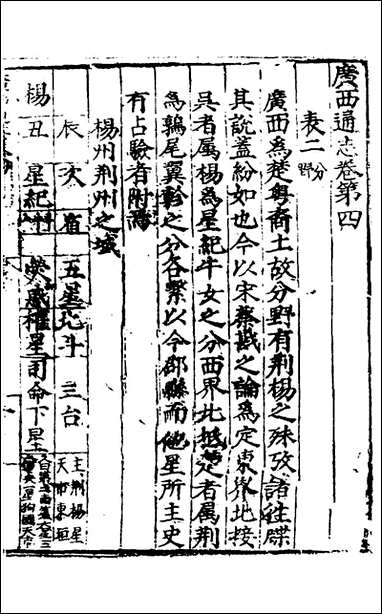 廣西通志卷第四
表二 分野
廣西為楚粵裔土故分野有荆楊之殊攷諸往牒
其說蓋紛如也今以宋蔡戡之論為定東界地接
吳者属楊為星紀牛女之分西界北抵 者属荆
為鶉尾翼軫之分各繫以今郡縣而他星所主史
有占驗者附焉
楊州荆州之域
辰 次 宿 五星 北斗 三台 主荆楊星 天市東垣
楊 丑 星紀 斗 熒惑 權星 司命下星主